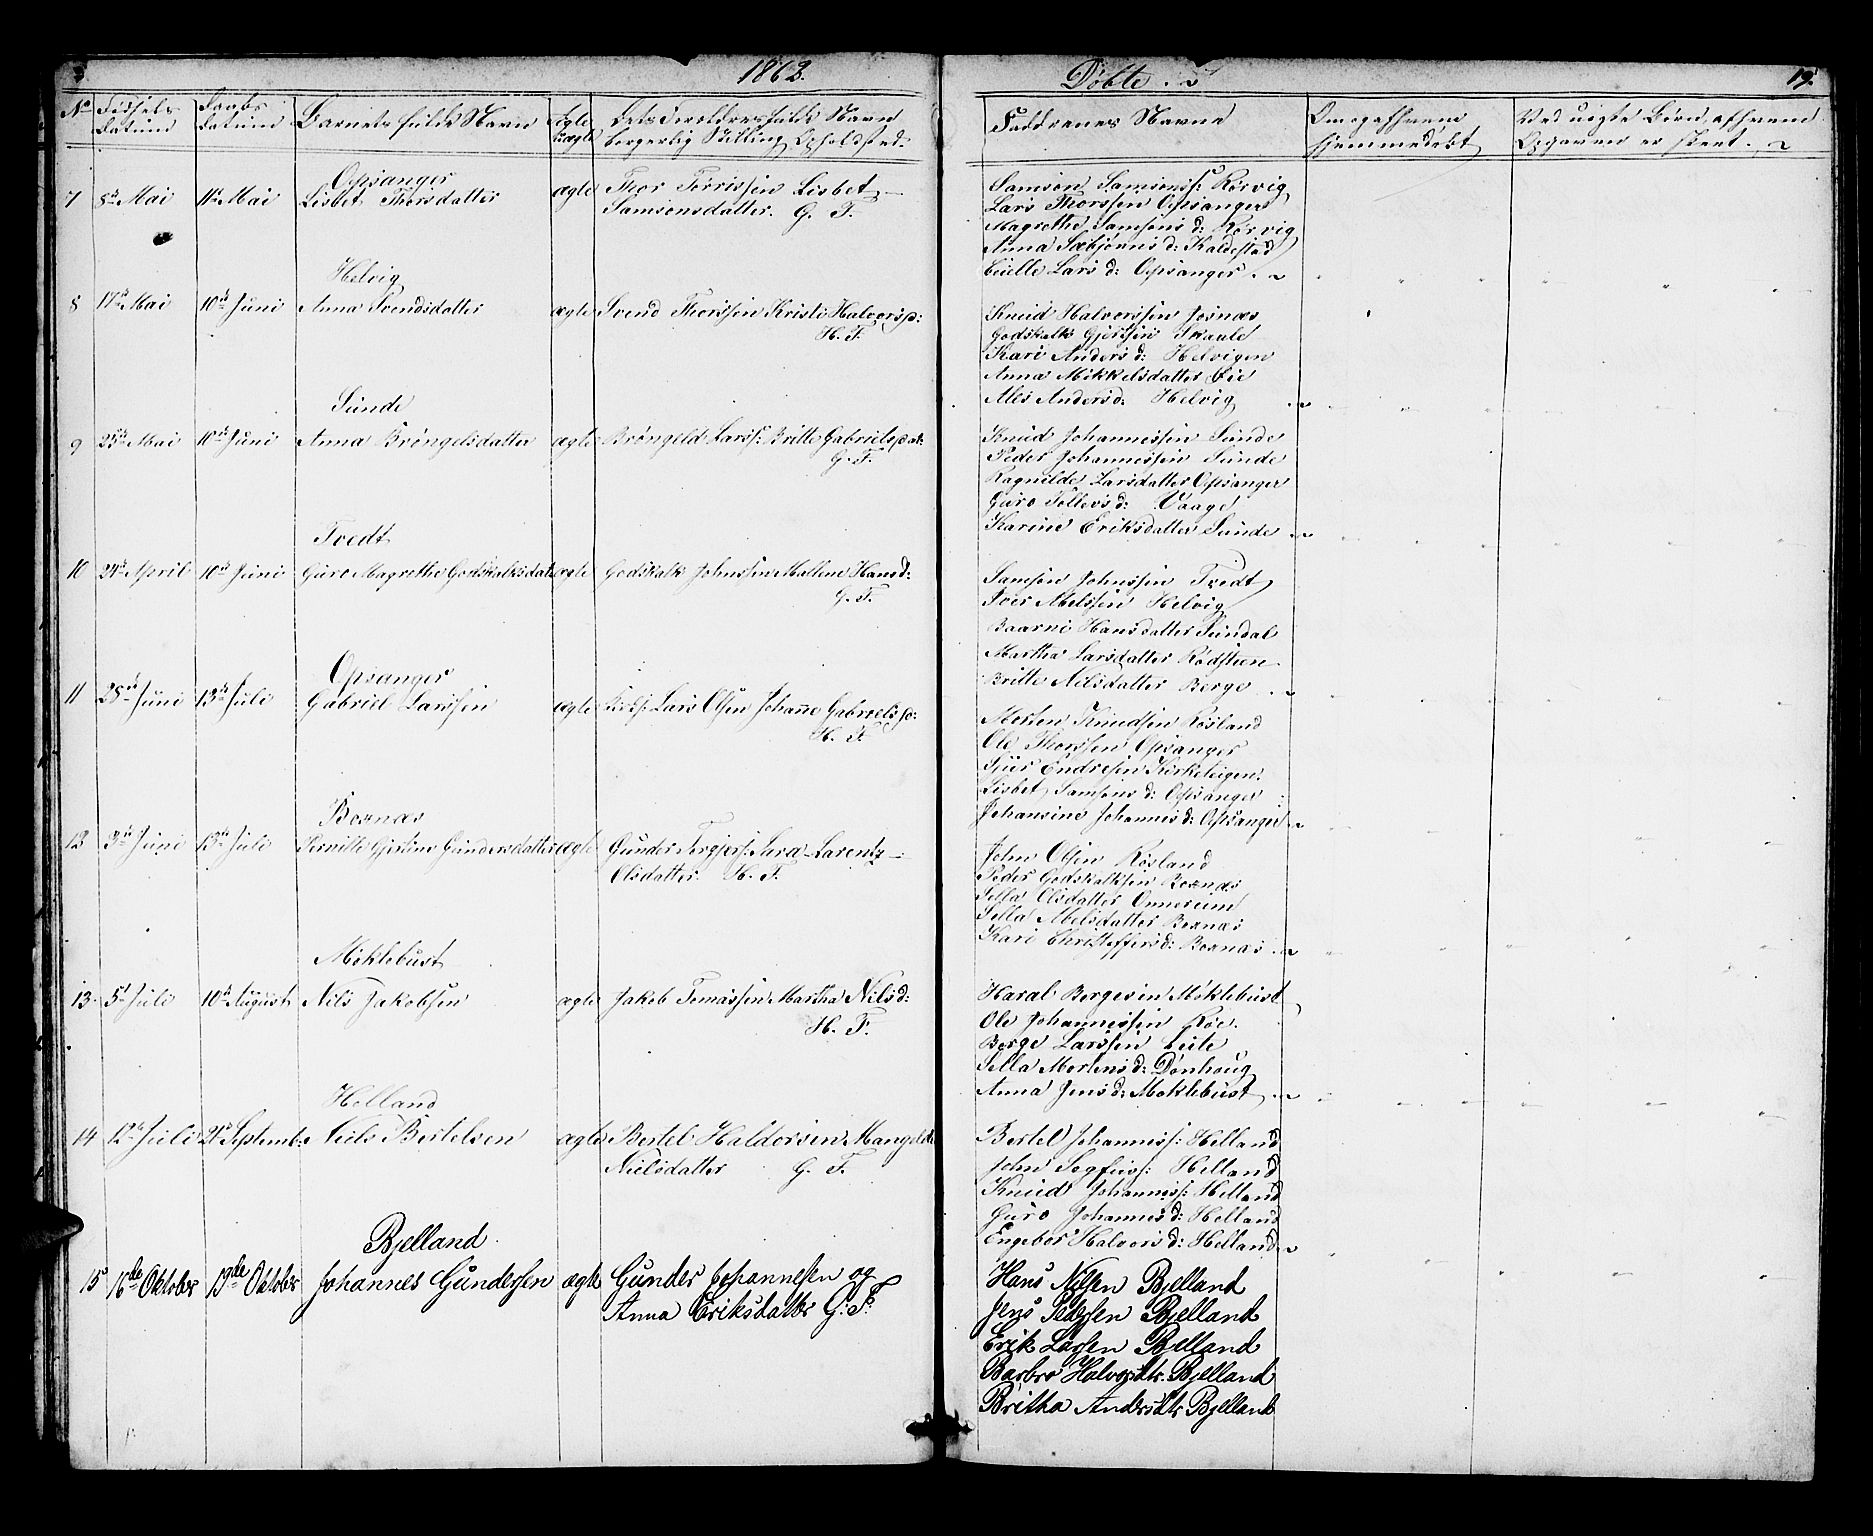 1863.
Døbte.
19.
No Fødsels Datum Daabs Datum Barnets fulde Navn Ægte Uægte Dets Foreldres fulde Navn borgerlig Stilling Opholdsted: Faddrenes Navne Om og af hvem hjemmedøbt Ved uegte Børn, af hvem Opgaven er skeet.
Opsanger
7 8de Mai 11te Mai Lisbet Thorsdatter ægte Thor Torrissen Lisbet
Samsonsdatter. G. F.
Samson Samsonss: Rørvig
Lars Thorssen Opsanger
Magrethe Samsons d: Rørvig
Anna Sæbjørns d: Kaldestad
Lars d: Opsanger
Helvig
8 17de Mai 10de Juni Anna Svendsdatter ægte Svend Thorssen Kristi Halvors
H. F.
Knud Halvorssen Josnæs
Godskalk Gjertsen Skaale
Kari Anders d: Helvigen
Anna Mikkelsdatter Øie
Ales Andersd: Helvig
Sunde
9 25de Mai 10de Juni Anna Brøngelsdatter ægte Brøngeld Larss: Britte Gabriels
G. F.
Knud Johannessen Sunde
Peder Johannessen Sunde
Ragnilde Larsdatter Opsanger
Guro Tollevs d: Vaage
Karine Eriksdatter Sunde
Tvedt
10 24de April 10de Juni Guro Magrethe Godskalksdat ægte Godskalk Johnssen Mallene Hansd:
G. F.
Samson Johnssen Tvedt
Iver Melssen Helvig
Baarni Hansdatter Sundal
Martha Larsdatter Rødsteen
Britte Nilsdatter Berge
Opsanger
11 28de Juni 13de Juli Gabriel Larssen ægte Lars Olsen Johanne Gabriels
H. F.
Morten Knudsen Røsland
Ole Thorssen Opsanger
Sjur Endresen Kirketeigen
Lisbet Samsons d: Opsanger
Johansine Johannes d: Opsanger
Bornæs
12 3de Juni 13de Juli Pernille Gjertine Gundersdatter ægte Gunder Torgjers: Sara Larentz
Olsdatter H. F.
John Olsen Røsland
Peder Godskalksen Bornæs
Sella Olsdatter Onnereim
Sella Melsdatter Bornæs
Kari Christoffersd: Bornæs
Møklebust
13 5te Juli 10de August Nils Jakobsen ægte Jakob Tomassen Martha Nilsd:
H. F.
Haral Bergesen Møklebust
Ole Johannessen Røe.
Berge Larssen Leite
Sella Mortens d: Dønhoug
Anna Jens d: Møklebust
Helland
14 12te Juli 21de Septemb: Niels Bertelsen ægte Bertel Haldorsen Mangelde
Nielsdatter G. F.
Bertel Johanness: Helland
John Segfus: Helland
Knud Johanness: Helland
Guro Johannes d: Helland
Engebor Halvors d: Helland
Bjelland.
15 16de Oktober 19de Oktober Johannes Gundersen ægte Gunder Johannesen og
Anna Eriksdatter G: F:
Hans Nilsen Bjelland
Jens Pedersen Bjelland
Erik Larsen Bjelland
Barbro Halvorsdtr. Bjelland
Britha Andersdtr Bjelland